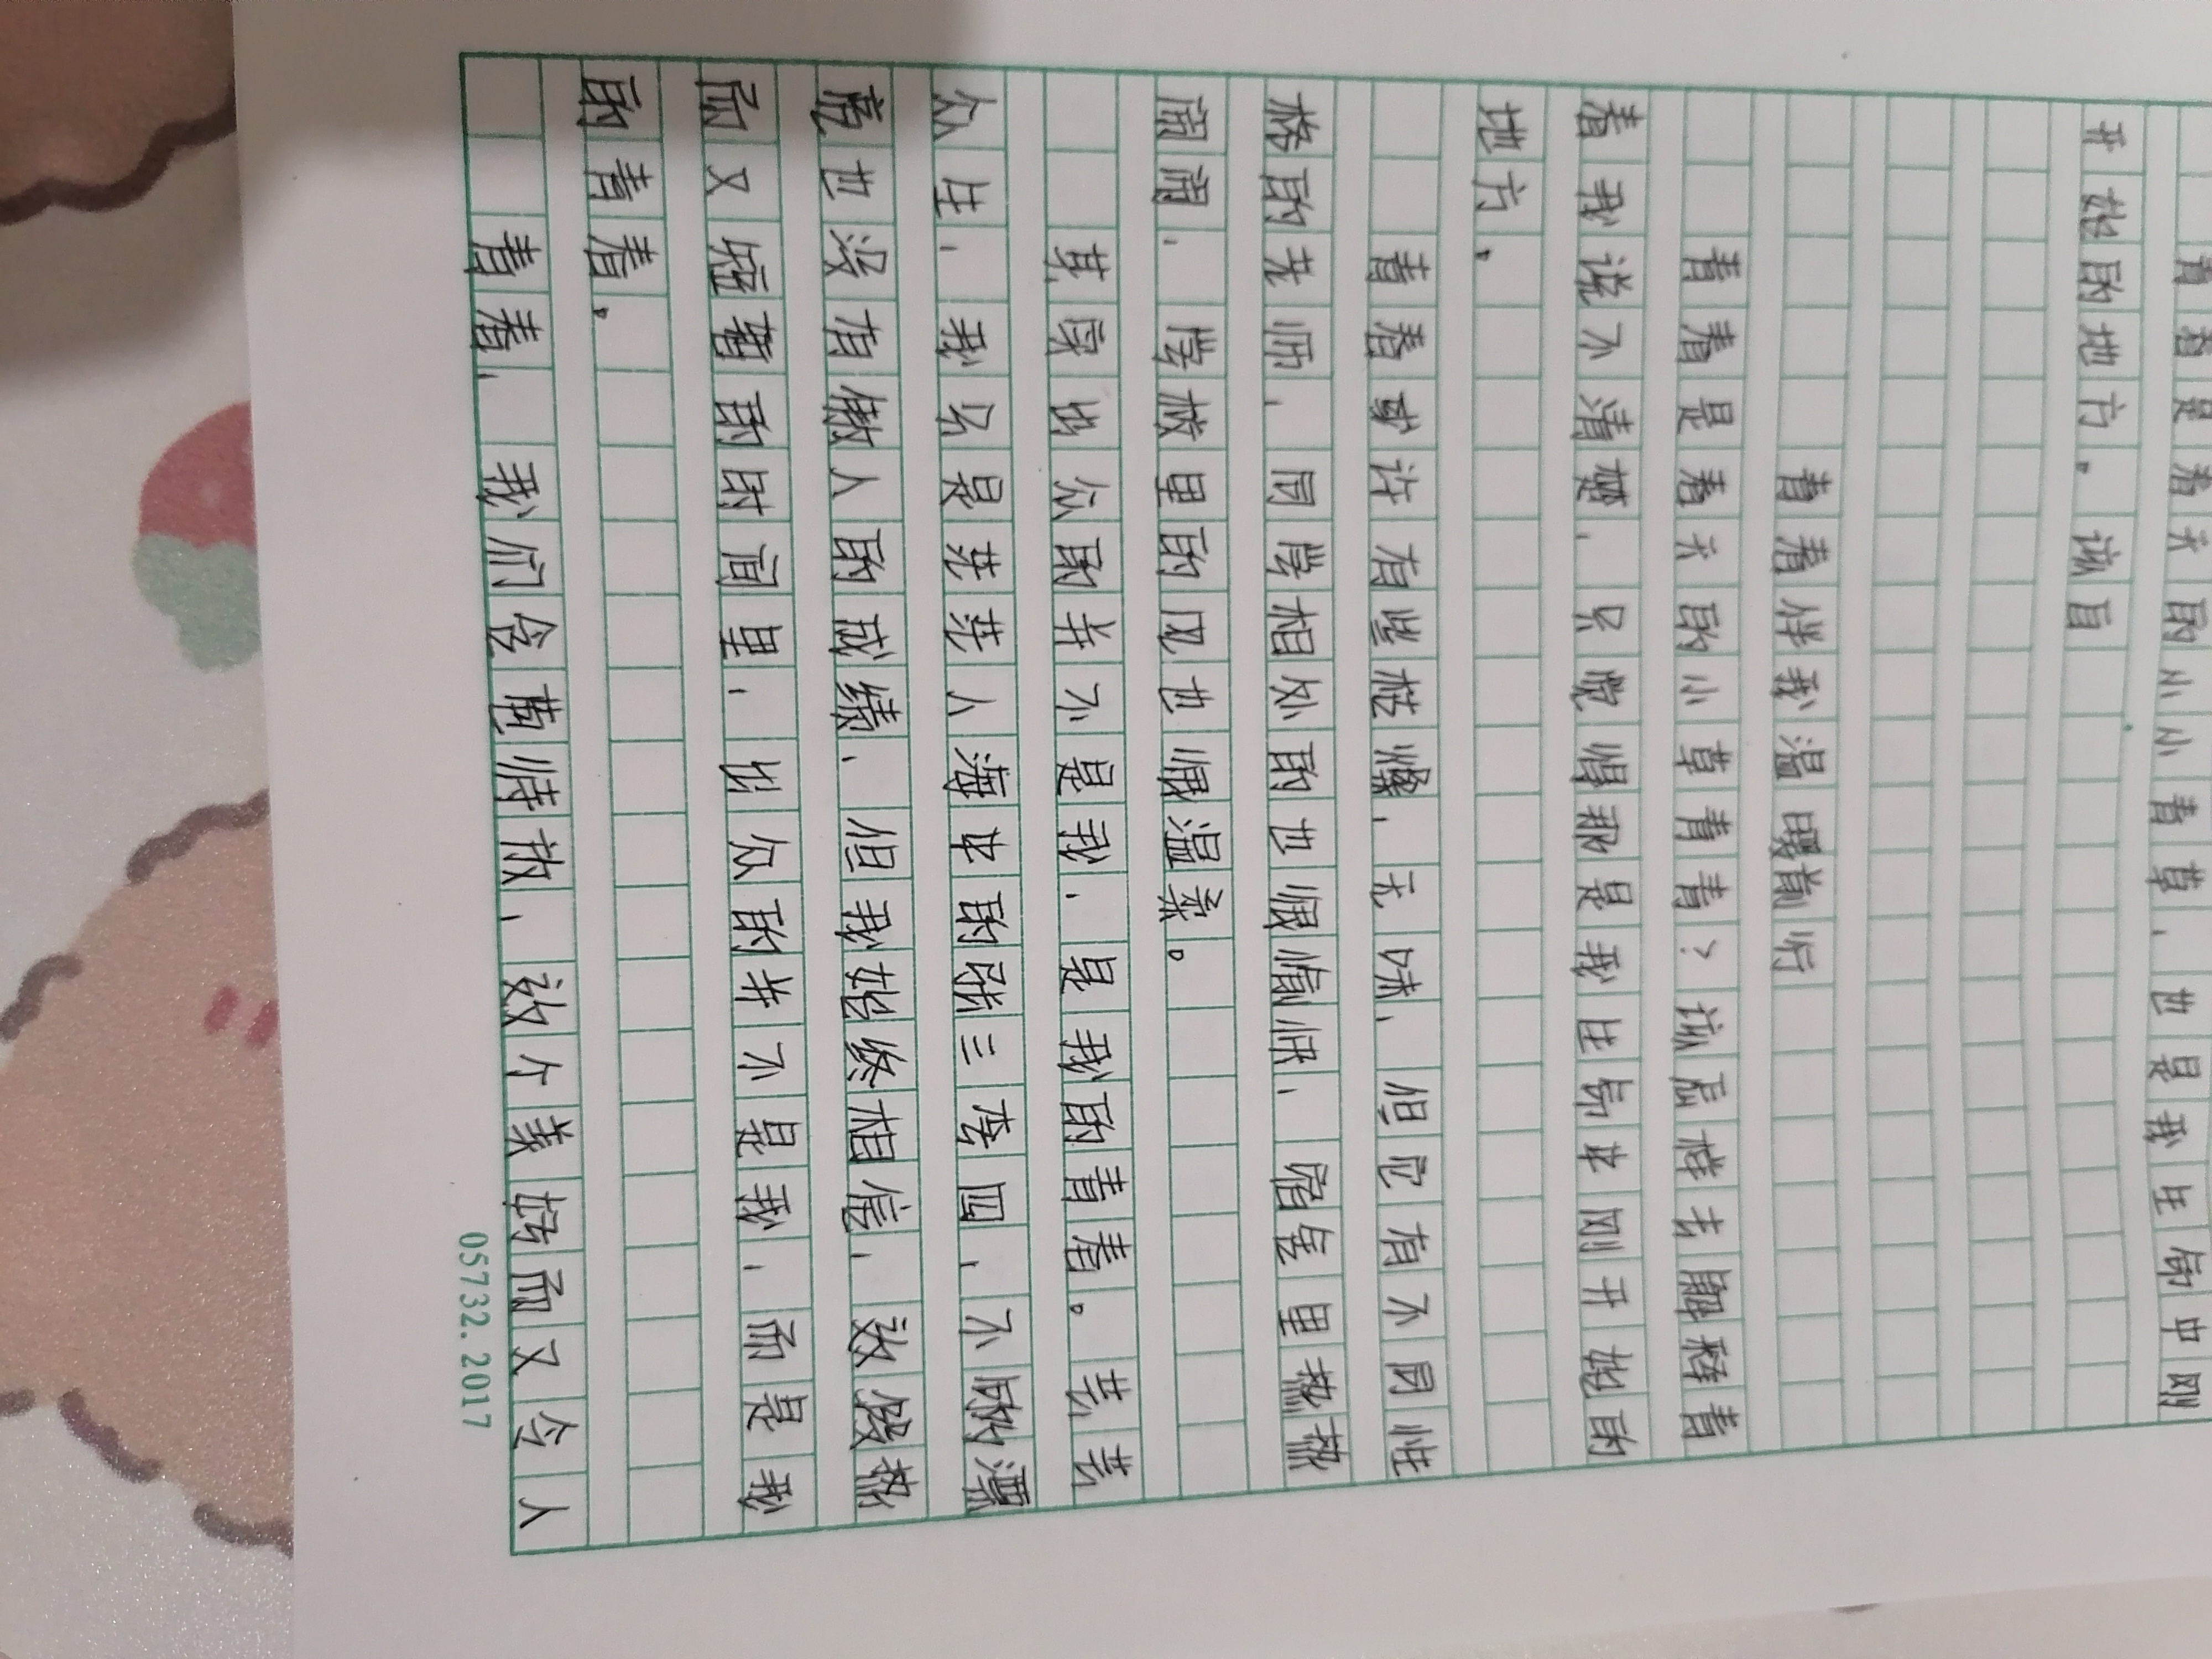 青春是春天的小小青草，也是我生命中刚
开始的地方。
青春伴我温暖前行
青春是春天的小草青青？该怎样去解释青
春我说不清楚，只觉得那是我生命中刚开始的
地方。
青春或许有些枯燥，无味，但它有不同性
格的老师，同学相处的也很愉快，宿舍里热热
闹闹，学校里的风也很温柔。
其实出众的并不是我，是我的青春。芸芸
众生，我只是茫茫人海中的张三李四，不够漂
亮也没有傲人的成绩，但我始终相信，这段热
而又短暂的时间里，出众的并不是我，而是我
的青春。
青春，我们会，这个美好而又令人